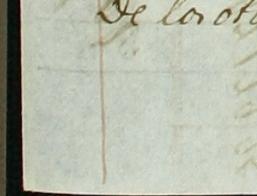 De los ot